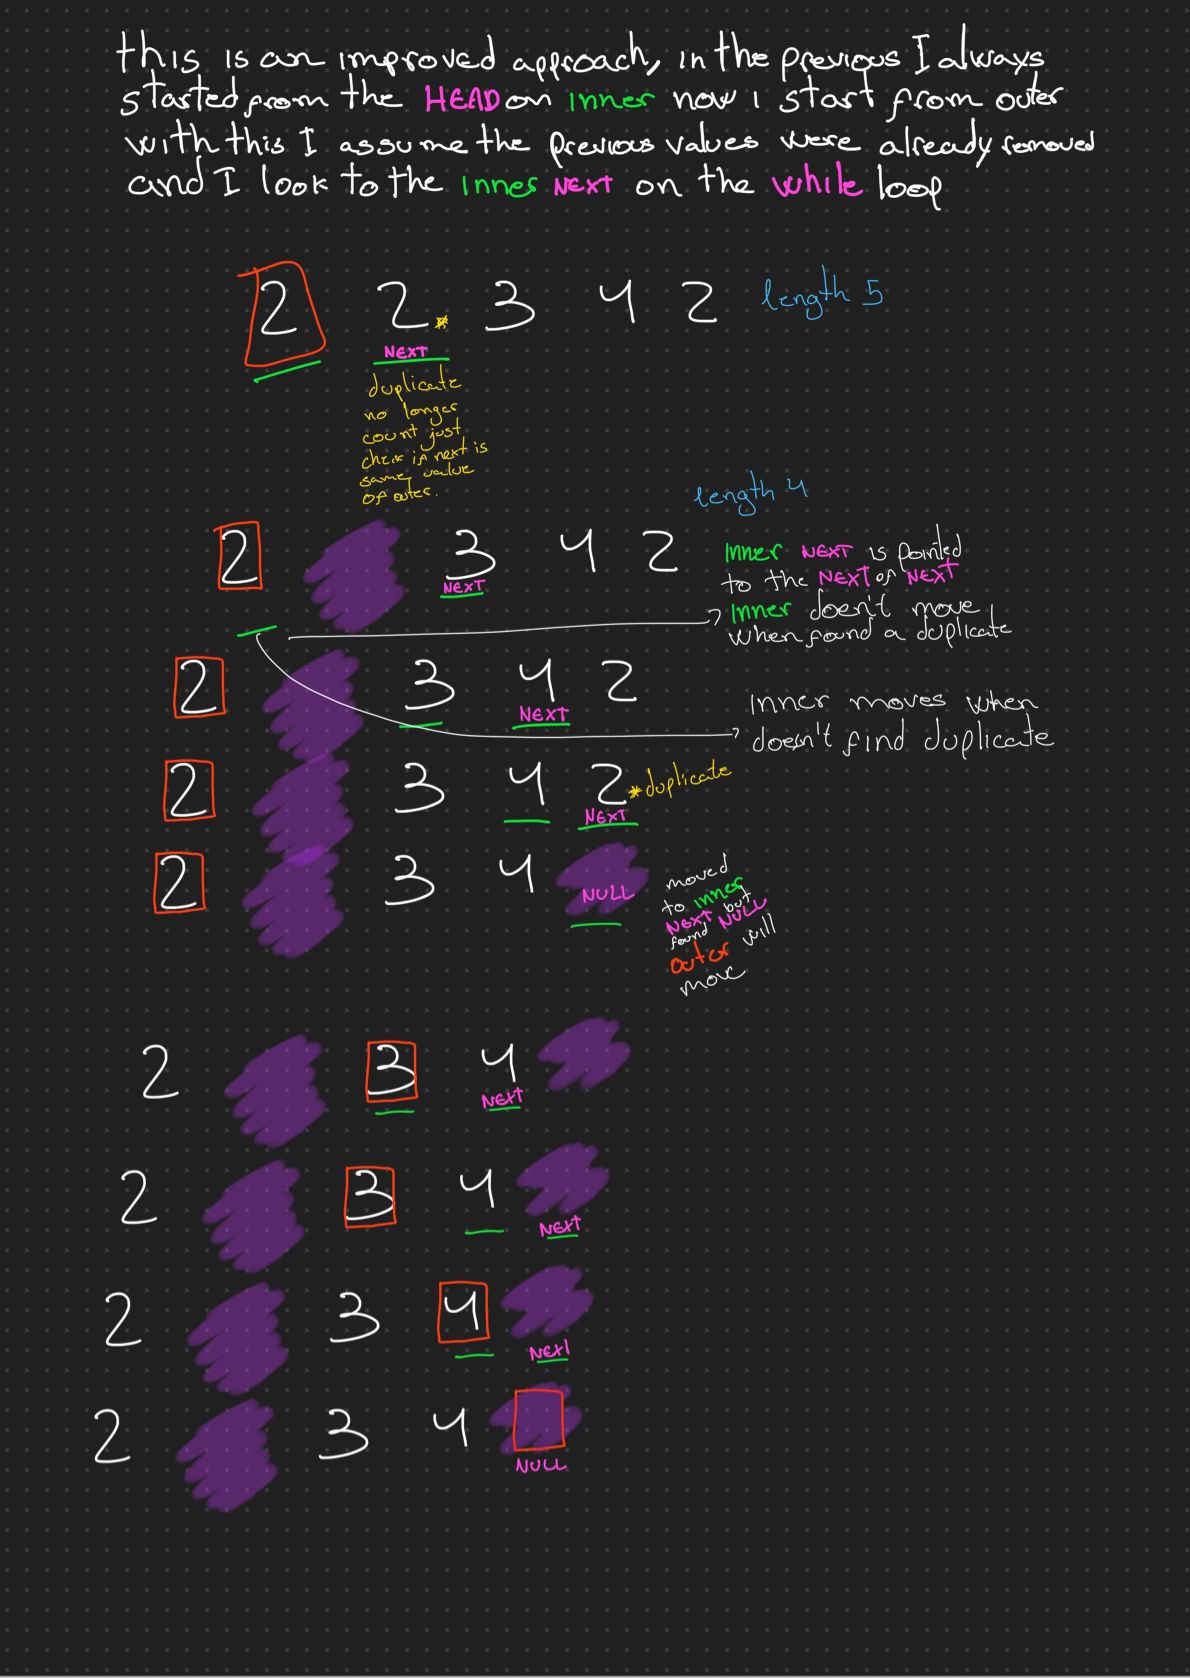 this is an improved approach, in the previous I always
started from the HEAD on inner now i start from outer
with this I assume the previous values were already removed
and I look to the inner NEXT on the while loop
2 2 * 3 4 2 length 5
NEXT
duplicate
no longer
count just
check if next is
same value
of outer.
length 4
2 3 4 2
NEXT
Inner NEXT is pointed
to the NEXT of NEXT
Inner doesn't move
when found a duplicate
2 3 4 2
NEXT
Inner moves when
doesn't find duplicate
2 3 4 2 * duplicate
NEXT
2 3 4 NULL
moved
to inner
NEXT but
found NULL
outer will
move
2 3 4
NEXT
2 3 4
NEXT
2 3 4
NEXT
2 3 4
NULL